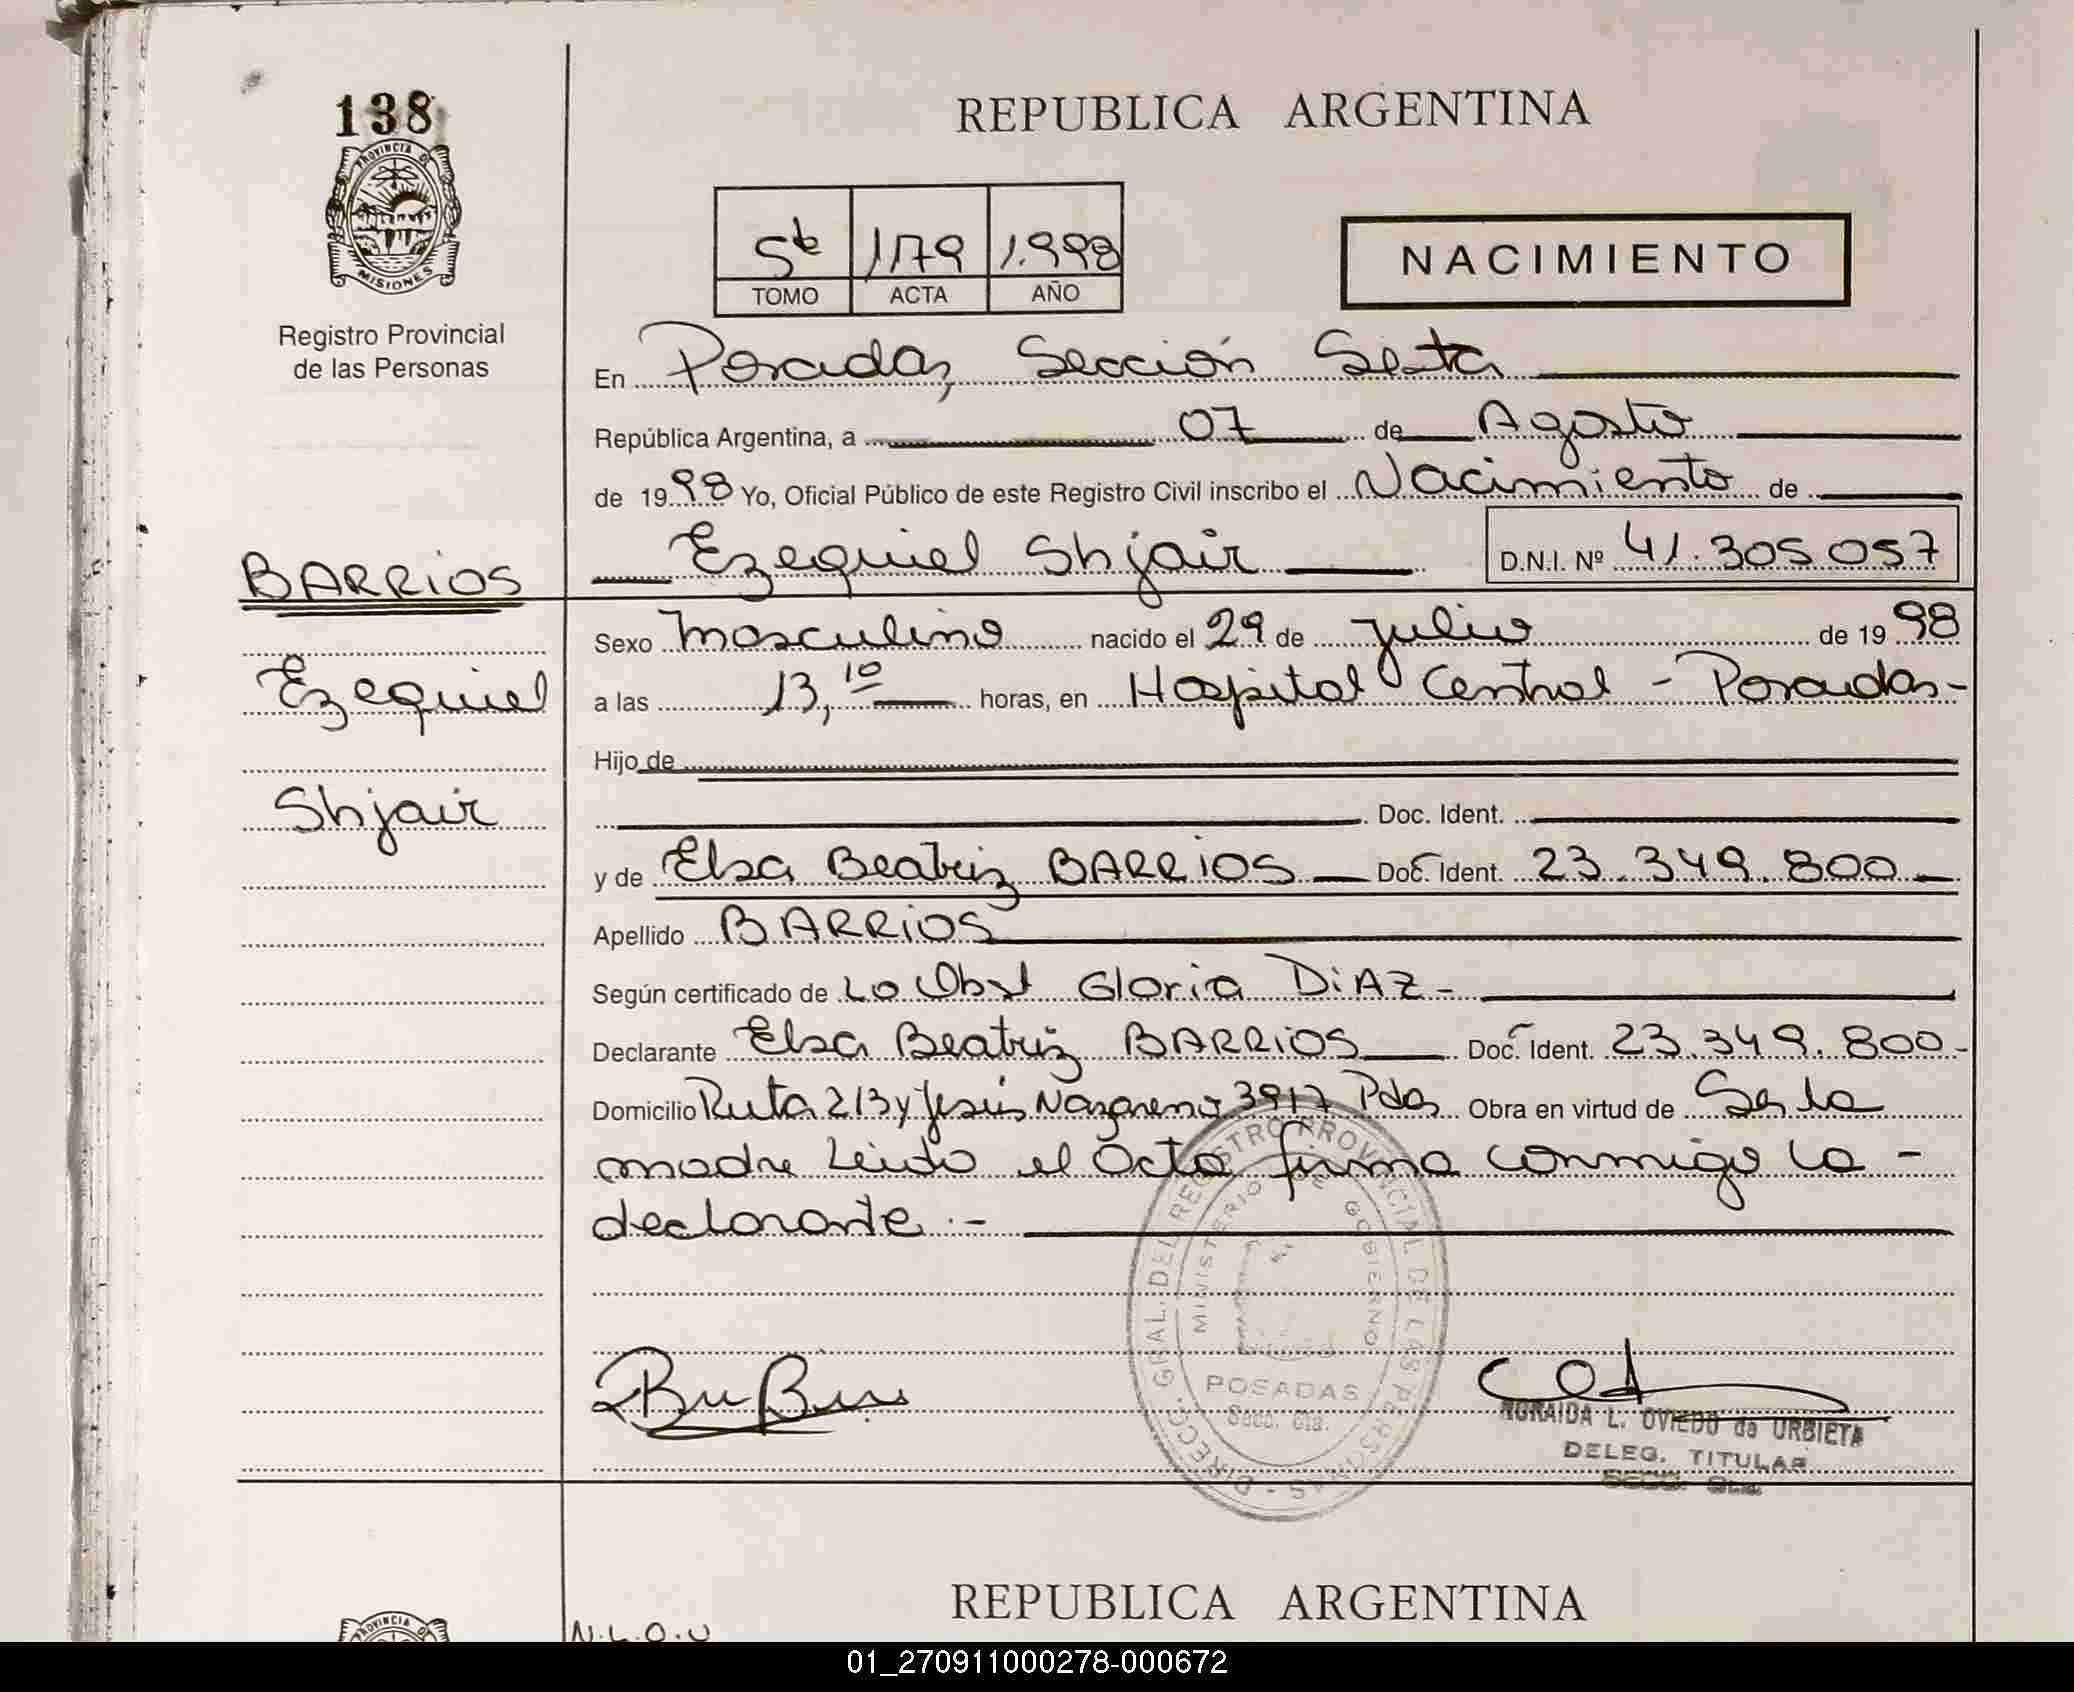 138
PROVINCIA DE
MISIONES
Registro Provincial
de las Personas
REPUBLICA ARGENTINA
5to 1179 1.998
TOMO ACTA AÑO
NACIMIENTO
En Posadas, Sección Sexta
República Argentina, a 07 de Agosto
de 1998 Yo, Oficial Público de este Registro Civil inscribo el Nacimiento de
Ezequiel Shjair D.N.I. Nº 41.305.057
BARRIOS
Ezequiel
Shjair
Sexo Masculino nacido el 29 de Julio de 1998
a las 13,10 horas, en Hospital Central - Posadas-
Hijo de
Doc. Ident.
y de Elsa Beatriz BARRIOS Doc. Ident. 23.349.800
Apellido BARRIOS
Según certificado de La Obst Gloria DiAZ-
Declarante Elsa Beatriz BARRIOS Doc. Ident. 23.349.800-
Domicilio Ruta 213 y Jesús Nazareno 3917 Pdas Obra en virtud de Ser la
madre Leida el Acta firma conmigo la -
declarante.-
DIRECC. GRAL. DEL REGISTRO PROVINCIAL DE LAS PERSONAS -
MINISTERIO DE GOBIERNO
POSADAS
Secc. 6ta.
NORAIDA L. OVIEDO de URBIETA
DELEG. TITULAR
SECC. 6ta.
REPUBLICA ARGENTINA
PROVINCIA
N.L.O.U
01_270911000278-000672